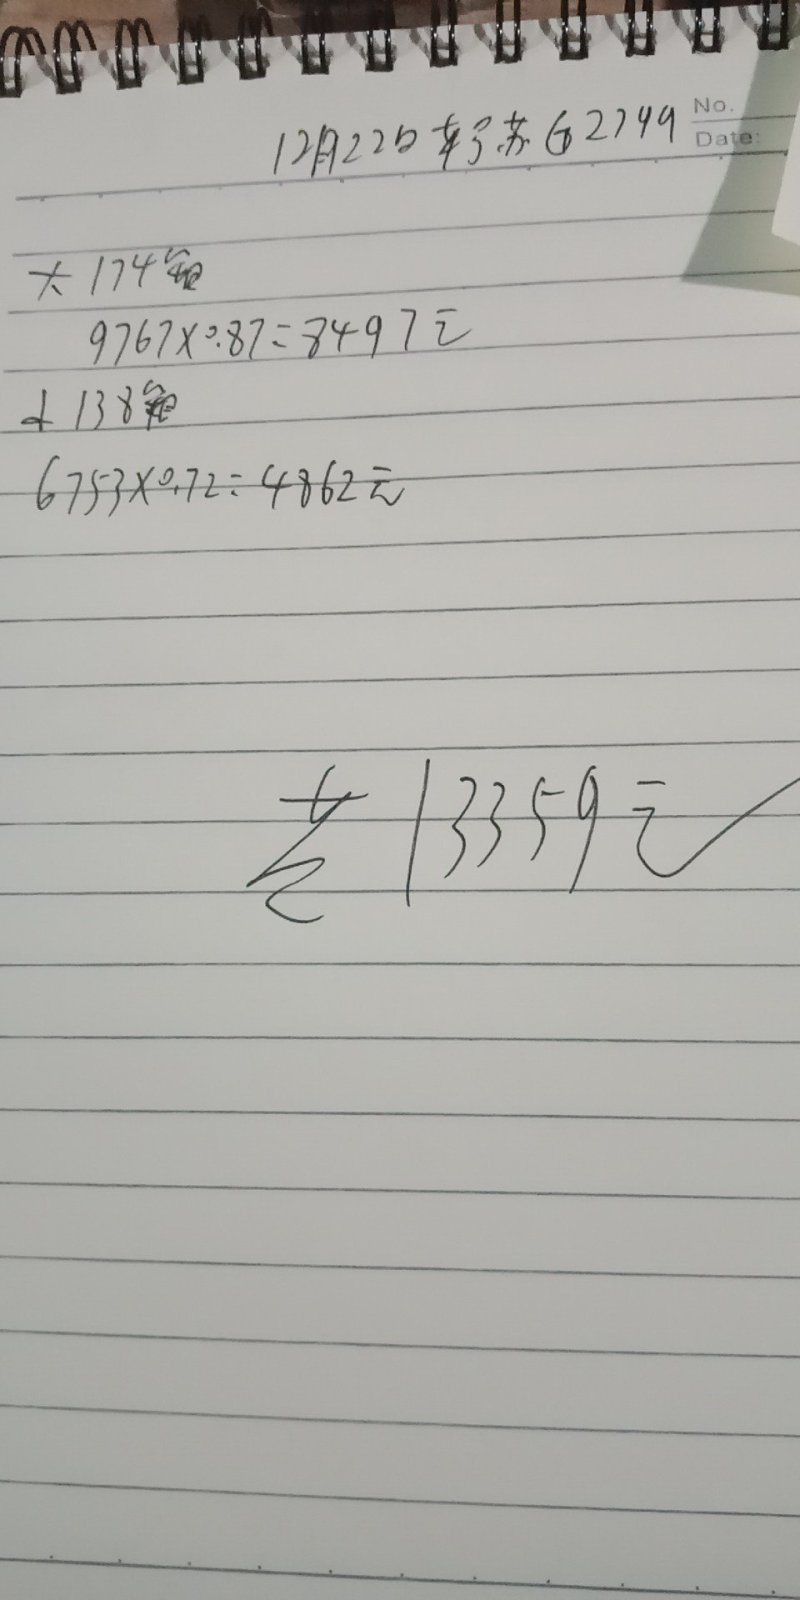 No.
Date:
12月22日 车号苏G2749
大 174包
9767×0.87=8497元
小 138包
6753×0.72=4862元
13359元